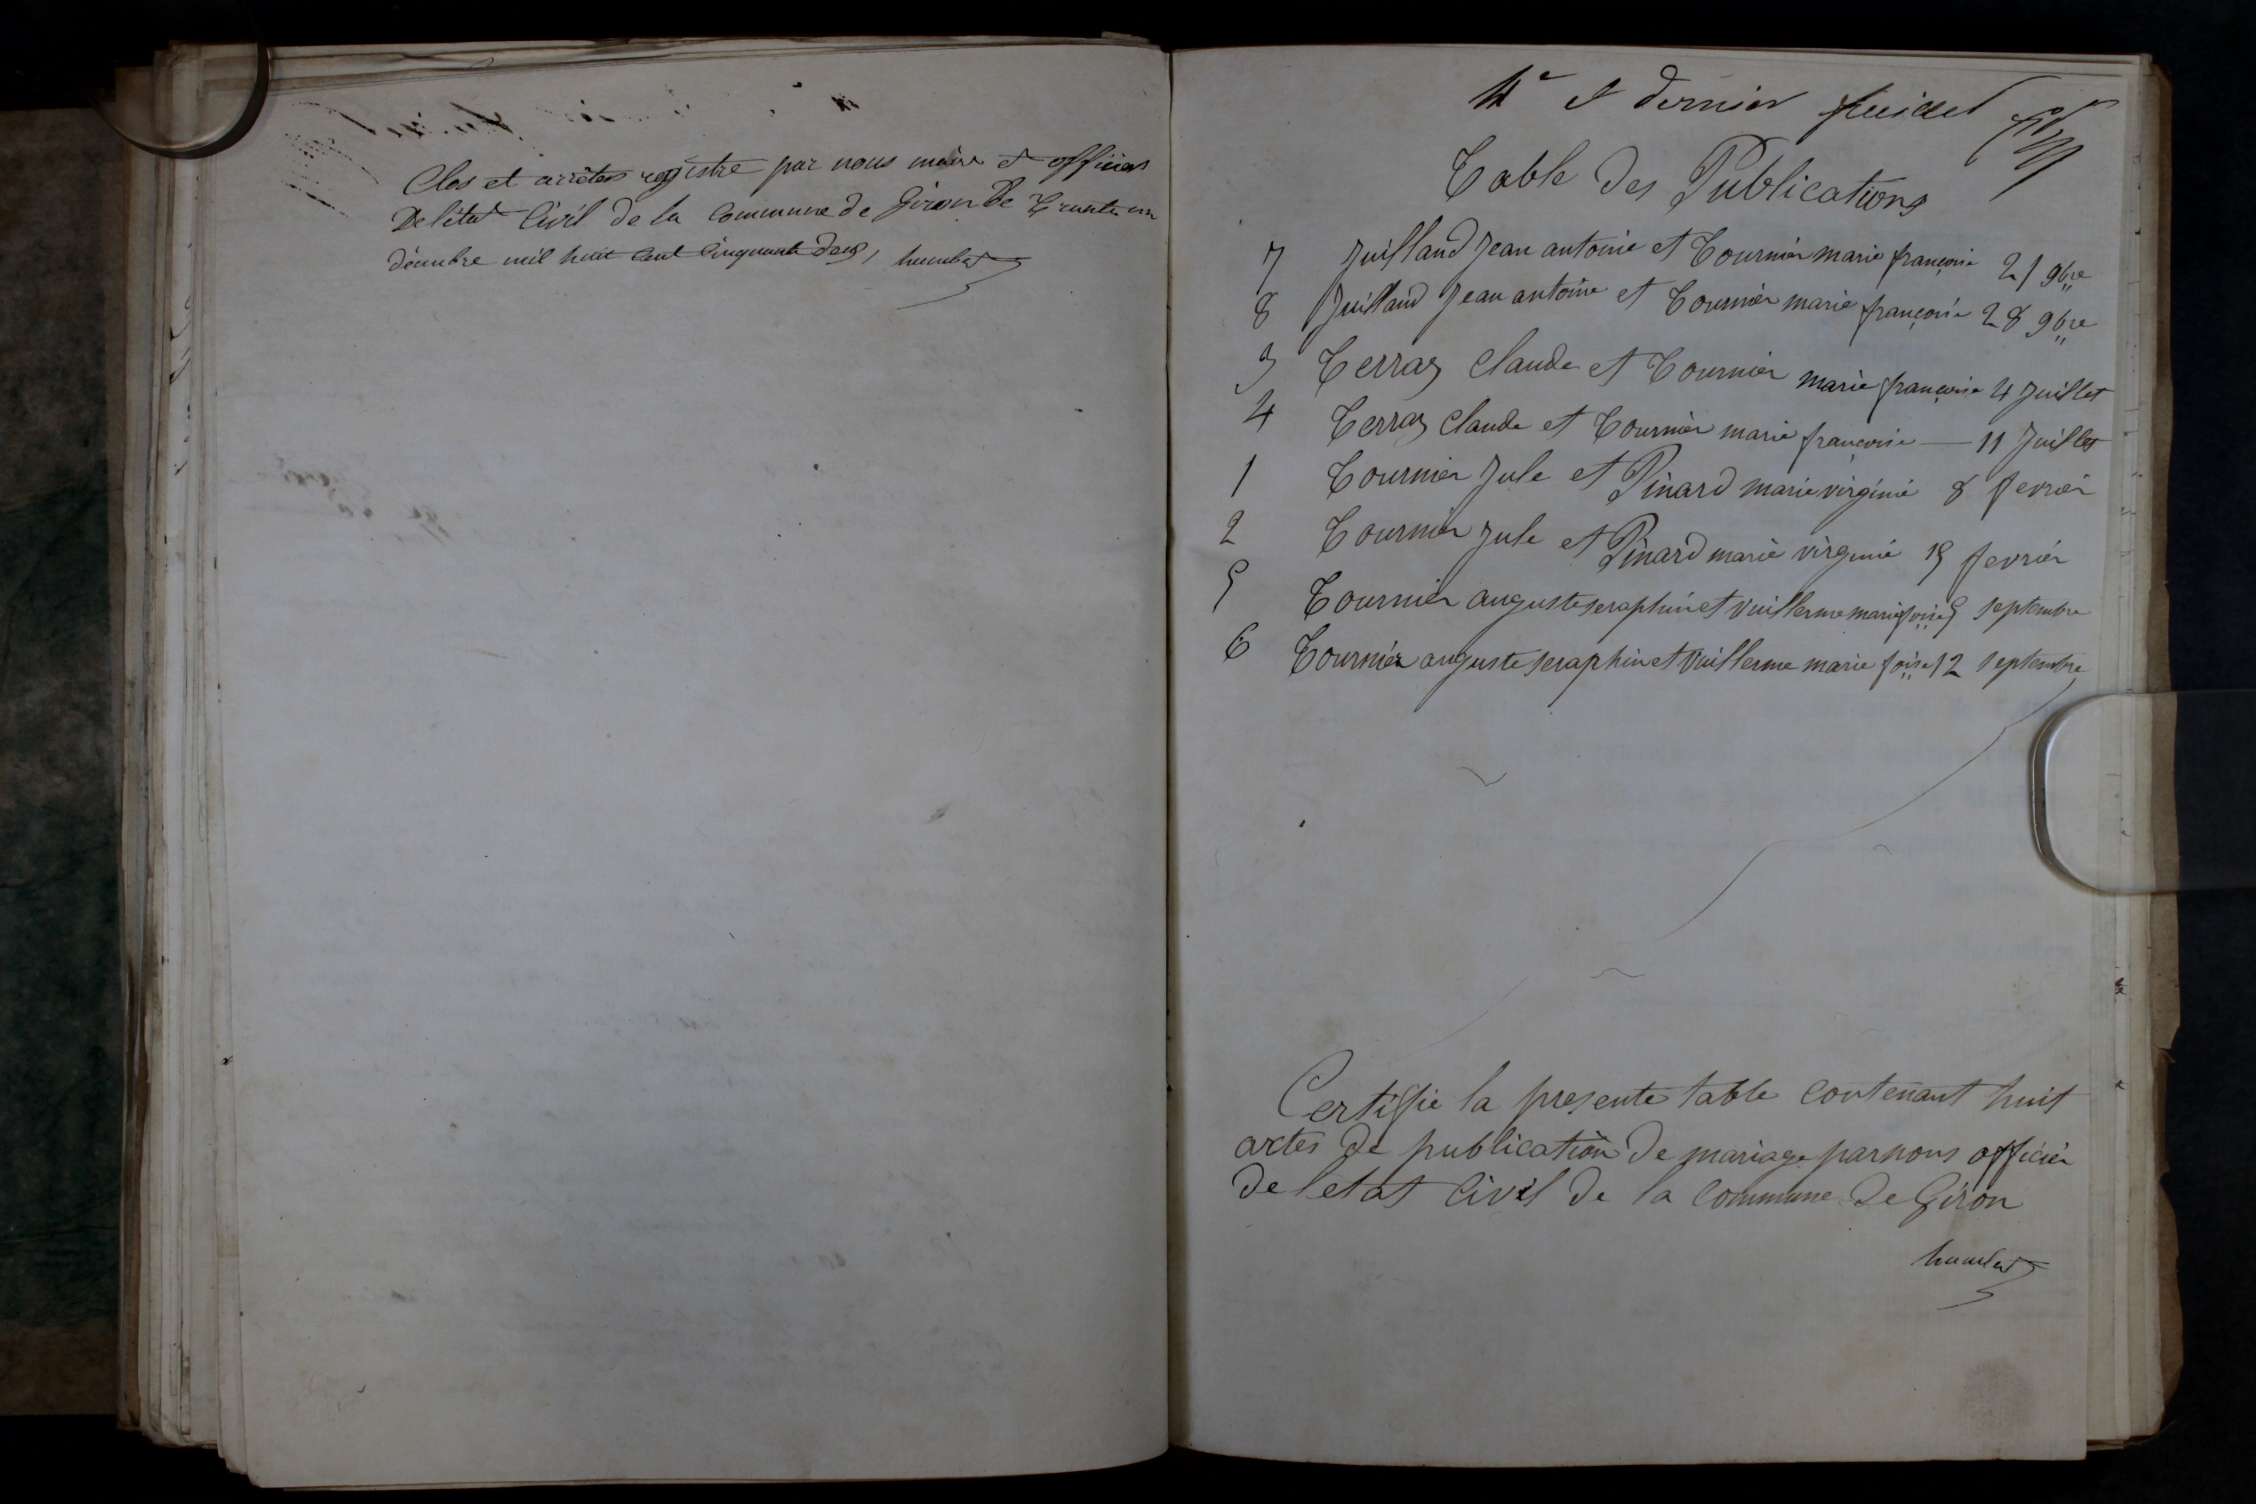 Clos et arrêtes registre par nous maire et officier
De létat Civil de la Commune de Giron Le Trente un
décembre mil huit cent Cinquante deux, humbert
4e et dernier feuillet
Table Des Publications
7 Juilland Jean antoine et Tournier marie françoise 21 9bre
8 Juilland Jean antoine et Tournier marie françoise 28 9bre
3 Terraz Claude et Tournier marie françoise 4 Juillet
4 Terraz Claude et Tournier marie françoise — 11 Juillet
1 Tournier Jule et Pinard marie virginie 8 fevrier
2 Tournier Jule et Pinard marie virginie 15 fevrier
5 Tournier auguste seraphin et Vuillerme marie foise 5 septembre
6 Tournier auguste seraphin et Vuillerme marie foise 12 septembre
Certifie la presente table contenant huit
actes de publication De mariage par nous officier
De letat Civil De la Commune De Giron
humbert